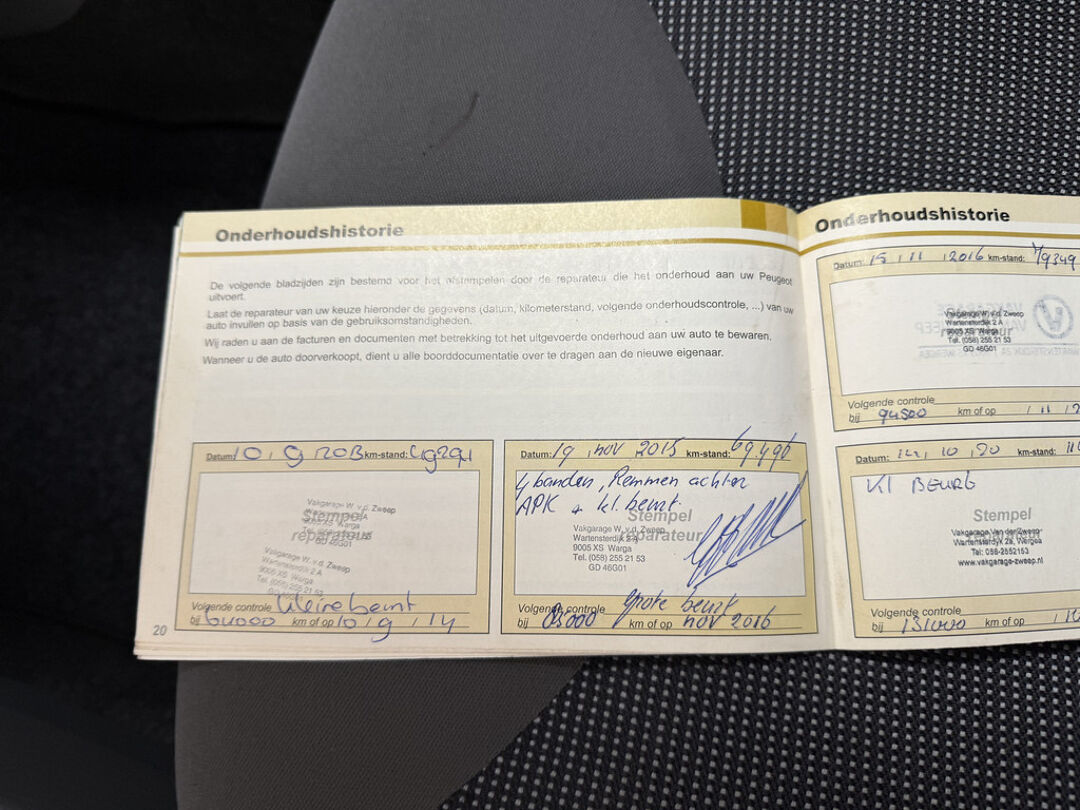 Onderhoudshistorie
De volgende bladzijden zijn bestemd voor het afstempelen door de reparateur die het onderhoud aan uw Peugeot
uitvoert.
Laat de reparateur van uw keuze hieronder de gegevens (datum, kilometerstand, volgende onderhoudscontrole, ...) van uw
auto invullen op basis van de gebruiksomstandigheden.
Wij raden u aan de facturen en documenten met betrekking tot het uitgevoerde onderhoud aan uw auto te bewaren.
Wanneer u de auto doorverkoopt, dient u alle boorddocumentatie over te dragen aan de nieuwe eigenaar.
Datum: 10, 9 2013 km-stand:
Stempel
reparateur
Vakgarage W. v.d. Zweep
Wartensterdijk 2 A
9005 XS Warga
Tel. (058) 255 21 53
GD 46G01
Vakgarage W. v.d. Zweep
Wartensterdijk 2 A
9005 XS Warga
Tel. (058) 255 21 53
Volgende controle kleine beurt
bij km of op 10, 9, 14
20
Datum: 19, nov 2015 km-stand: 69.496
4 banden, Remmen achter
APK + kl. beurt.
Stempel
reparateur
Vakgarage W. v.d. Zweep
Wartensterdijk 2 A
9005 XS Warga
Tel. (058) 255 21 53
GD 46G01
Volgende controle grote beurt
bij km of op nov 2016
Onderhoudshistorie
Datum: 15, 11, 2016 km-stand: 79349
Vakgarage W. v.d. Zweep
Wartensterdijk 2 A
9005 XS Warga
Tel. (058) 255 21 53
GD 46G01
Volgende controle
bij 94500 km of op / 11
Datum: 10, 20 km-stand:
Kl BEURT
Stempel
Vakgarage Van der Zweep
Wartensterdyk 2a, Wergea
Tel: 058-2552153
www.vakgarage-zweep.nl
Volgende controle
bij 131000 km of op